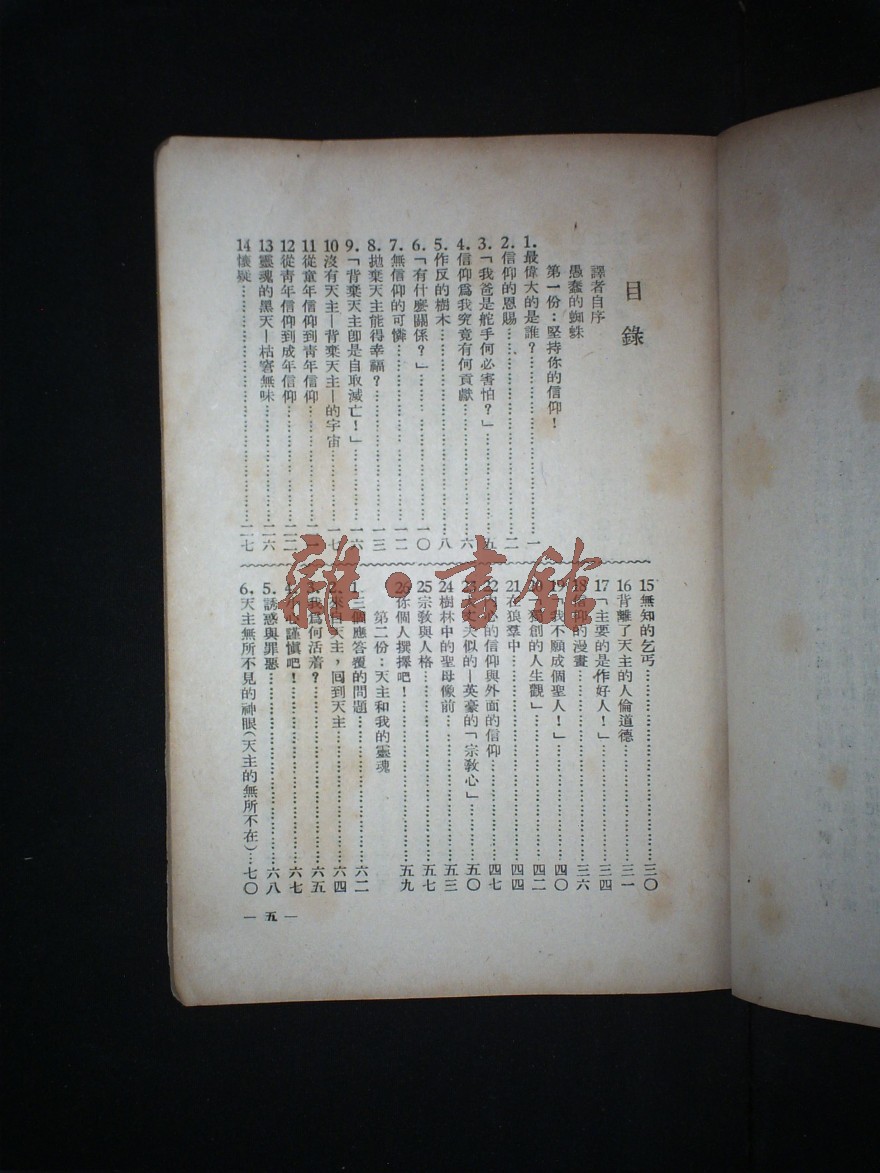 目錄
譯者自序
愚蠢的蜘蛛
第一份：堅持你的信仰！
1.最偉大的是誰？……一
2.信仰的恩賜……二
3.「我爸是舵手何必害怕？」……五
4.信仰爲我究竟有何貢獻……六
5.作反的樹木……八
6.「有什麼關係？」……一〇
7.無信仰的可憐……一二
8.拋棄天主能得幸福？……一三
9.「背棄天主卽是自取滅亡！」……一六
10沒有天主—背棄天主—的宇宙……一七
11從童年信仰到靑年信仰
12從靑年信仰到成年信仰……二二
13靈魂的黑天—枯窘無味……二六
14懷疑……二七
15無知的乞丐……三〇
16背離了天主的人倫道德……三一
17「主要的是作好人！」……三四
18信仰的漫畫……三六
19「我不願成個聖人！」……四〇
20「獨創的人生觀」……四二
21在狼羣中……四四
22內心的信仰與外面的信仰……四七
23丈夫似的—英豪的「宗敎心」……五〇
24樹林中的聖母像前……五三
25宗敎與人格……五七
26你個人撰擇吧！……五九
第二份：天主和我的靈魂
1.三個應答覆的問題……六二
2.來自天主，囘到天主……六四
3.我爲何活着？……六五
4.小心謹愼吧！……六七
5.誘惑與罪惡……六八
6.天主無所不見的神眼（天主的無所不在）…七〇
— 五 —
雜·書館